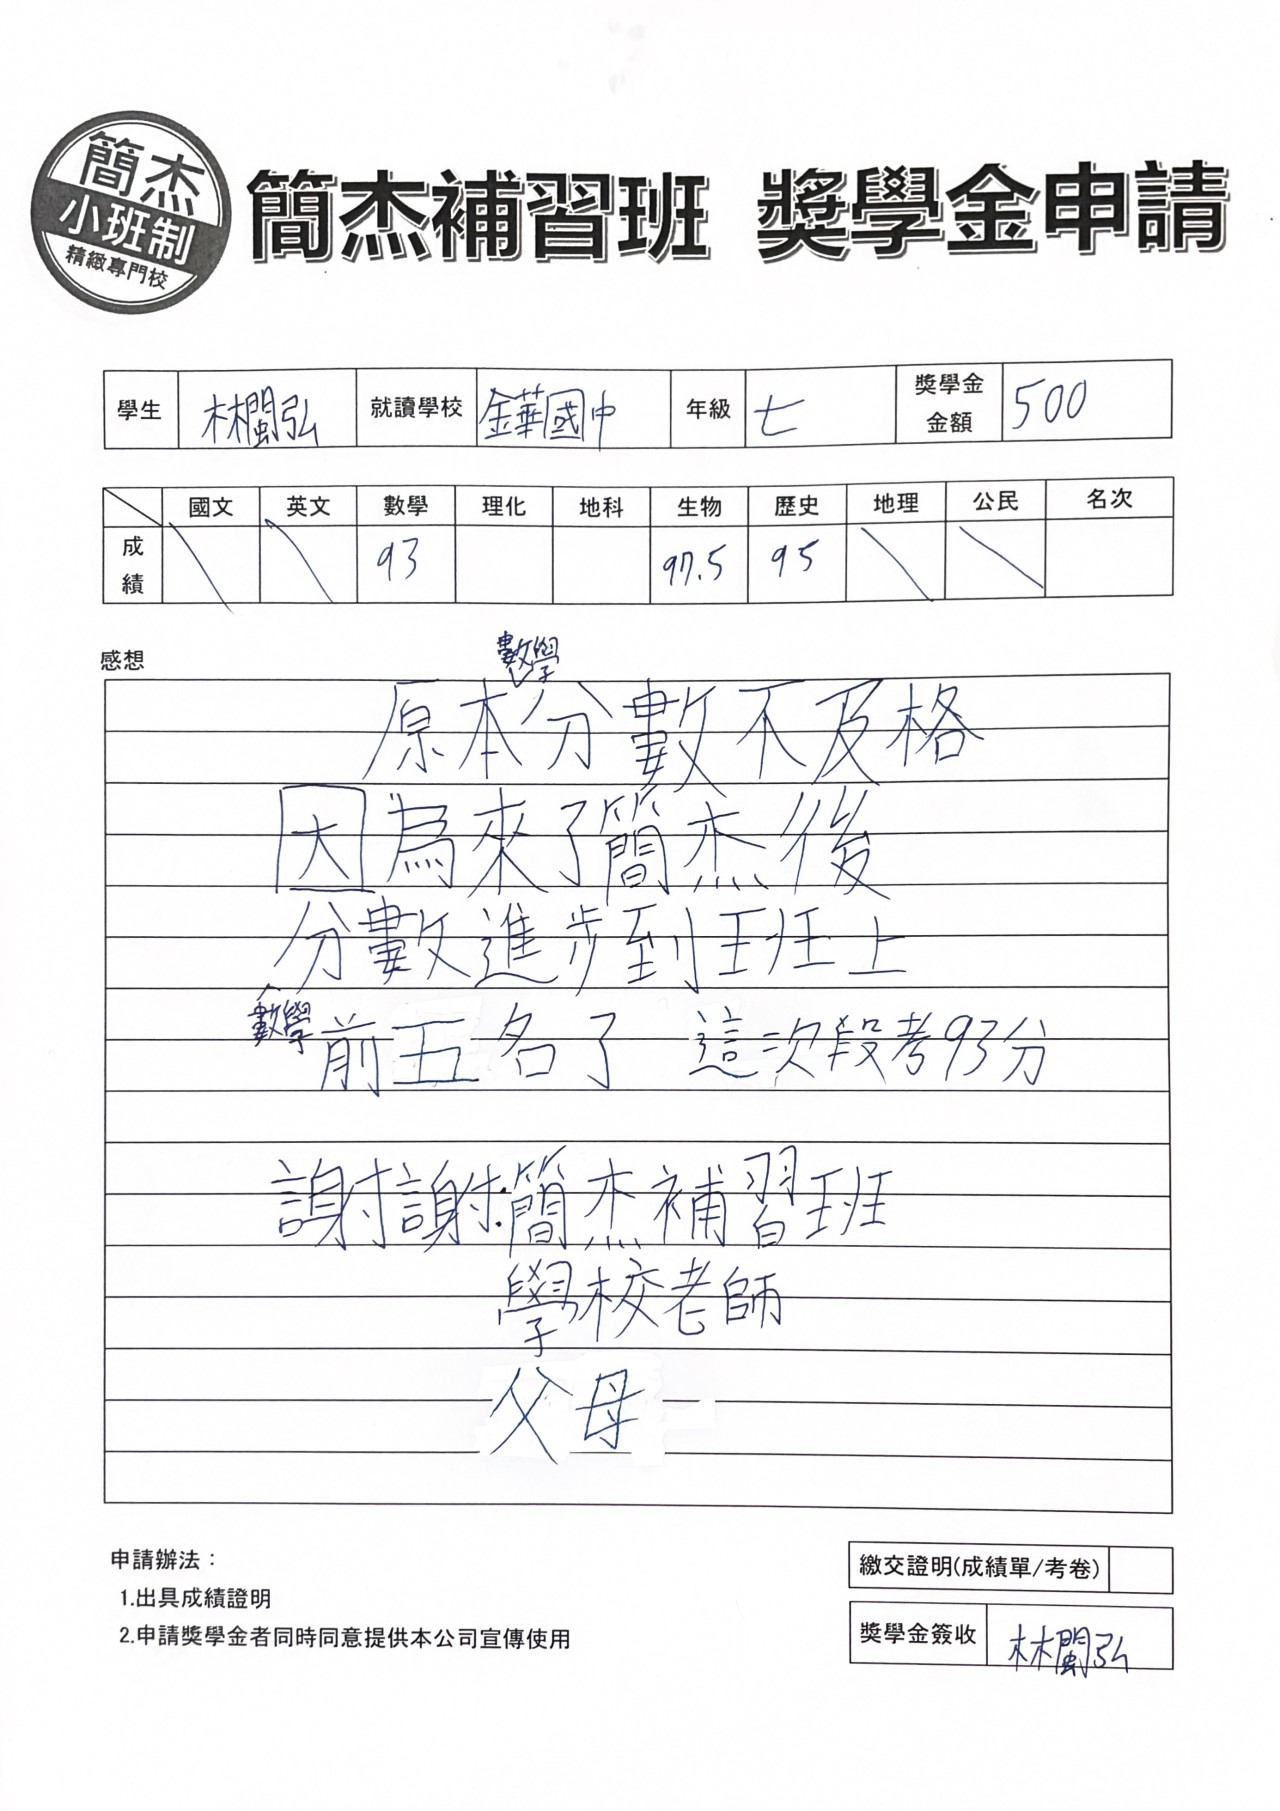 簡杰
小班制
精緻專門校
簡杰補習班 獎學金申請
學生 林閩弘 就讀學校 金華國中 年級 七 獎學金金額 500
國文 英文 數學 理化 地科 生物 歷史 地理 公民 名次
成績 93 97.5 95
感想
原本數學分數不及格
因為來了簡杰後
數學分數進步到班上
前五名了 這次段考93分
謝謝:簡杰補習班
學校老師
父母
申請辦法：
1.出具成績證明
2.申請獎學金者同時同意提供本公司宣傳使用
繳交證明(成績單/考卷)
獎學金簽收 林閩弘